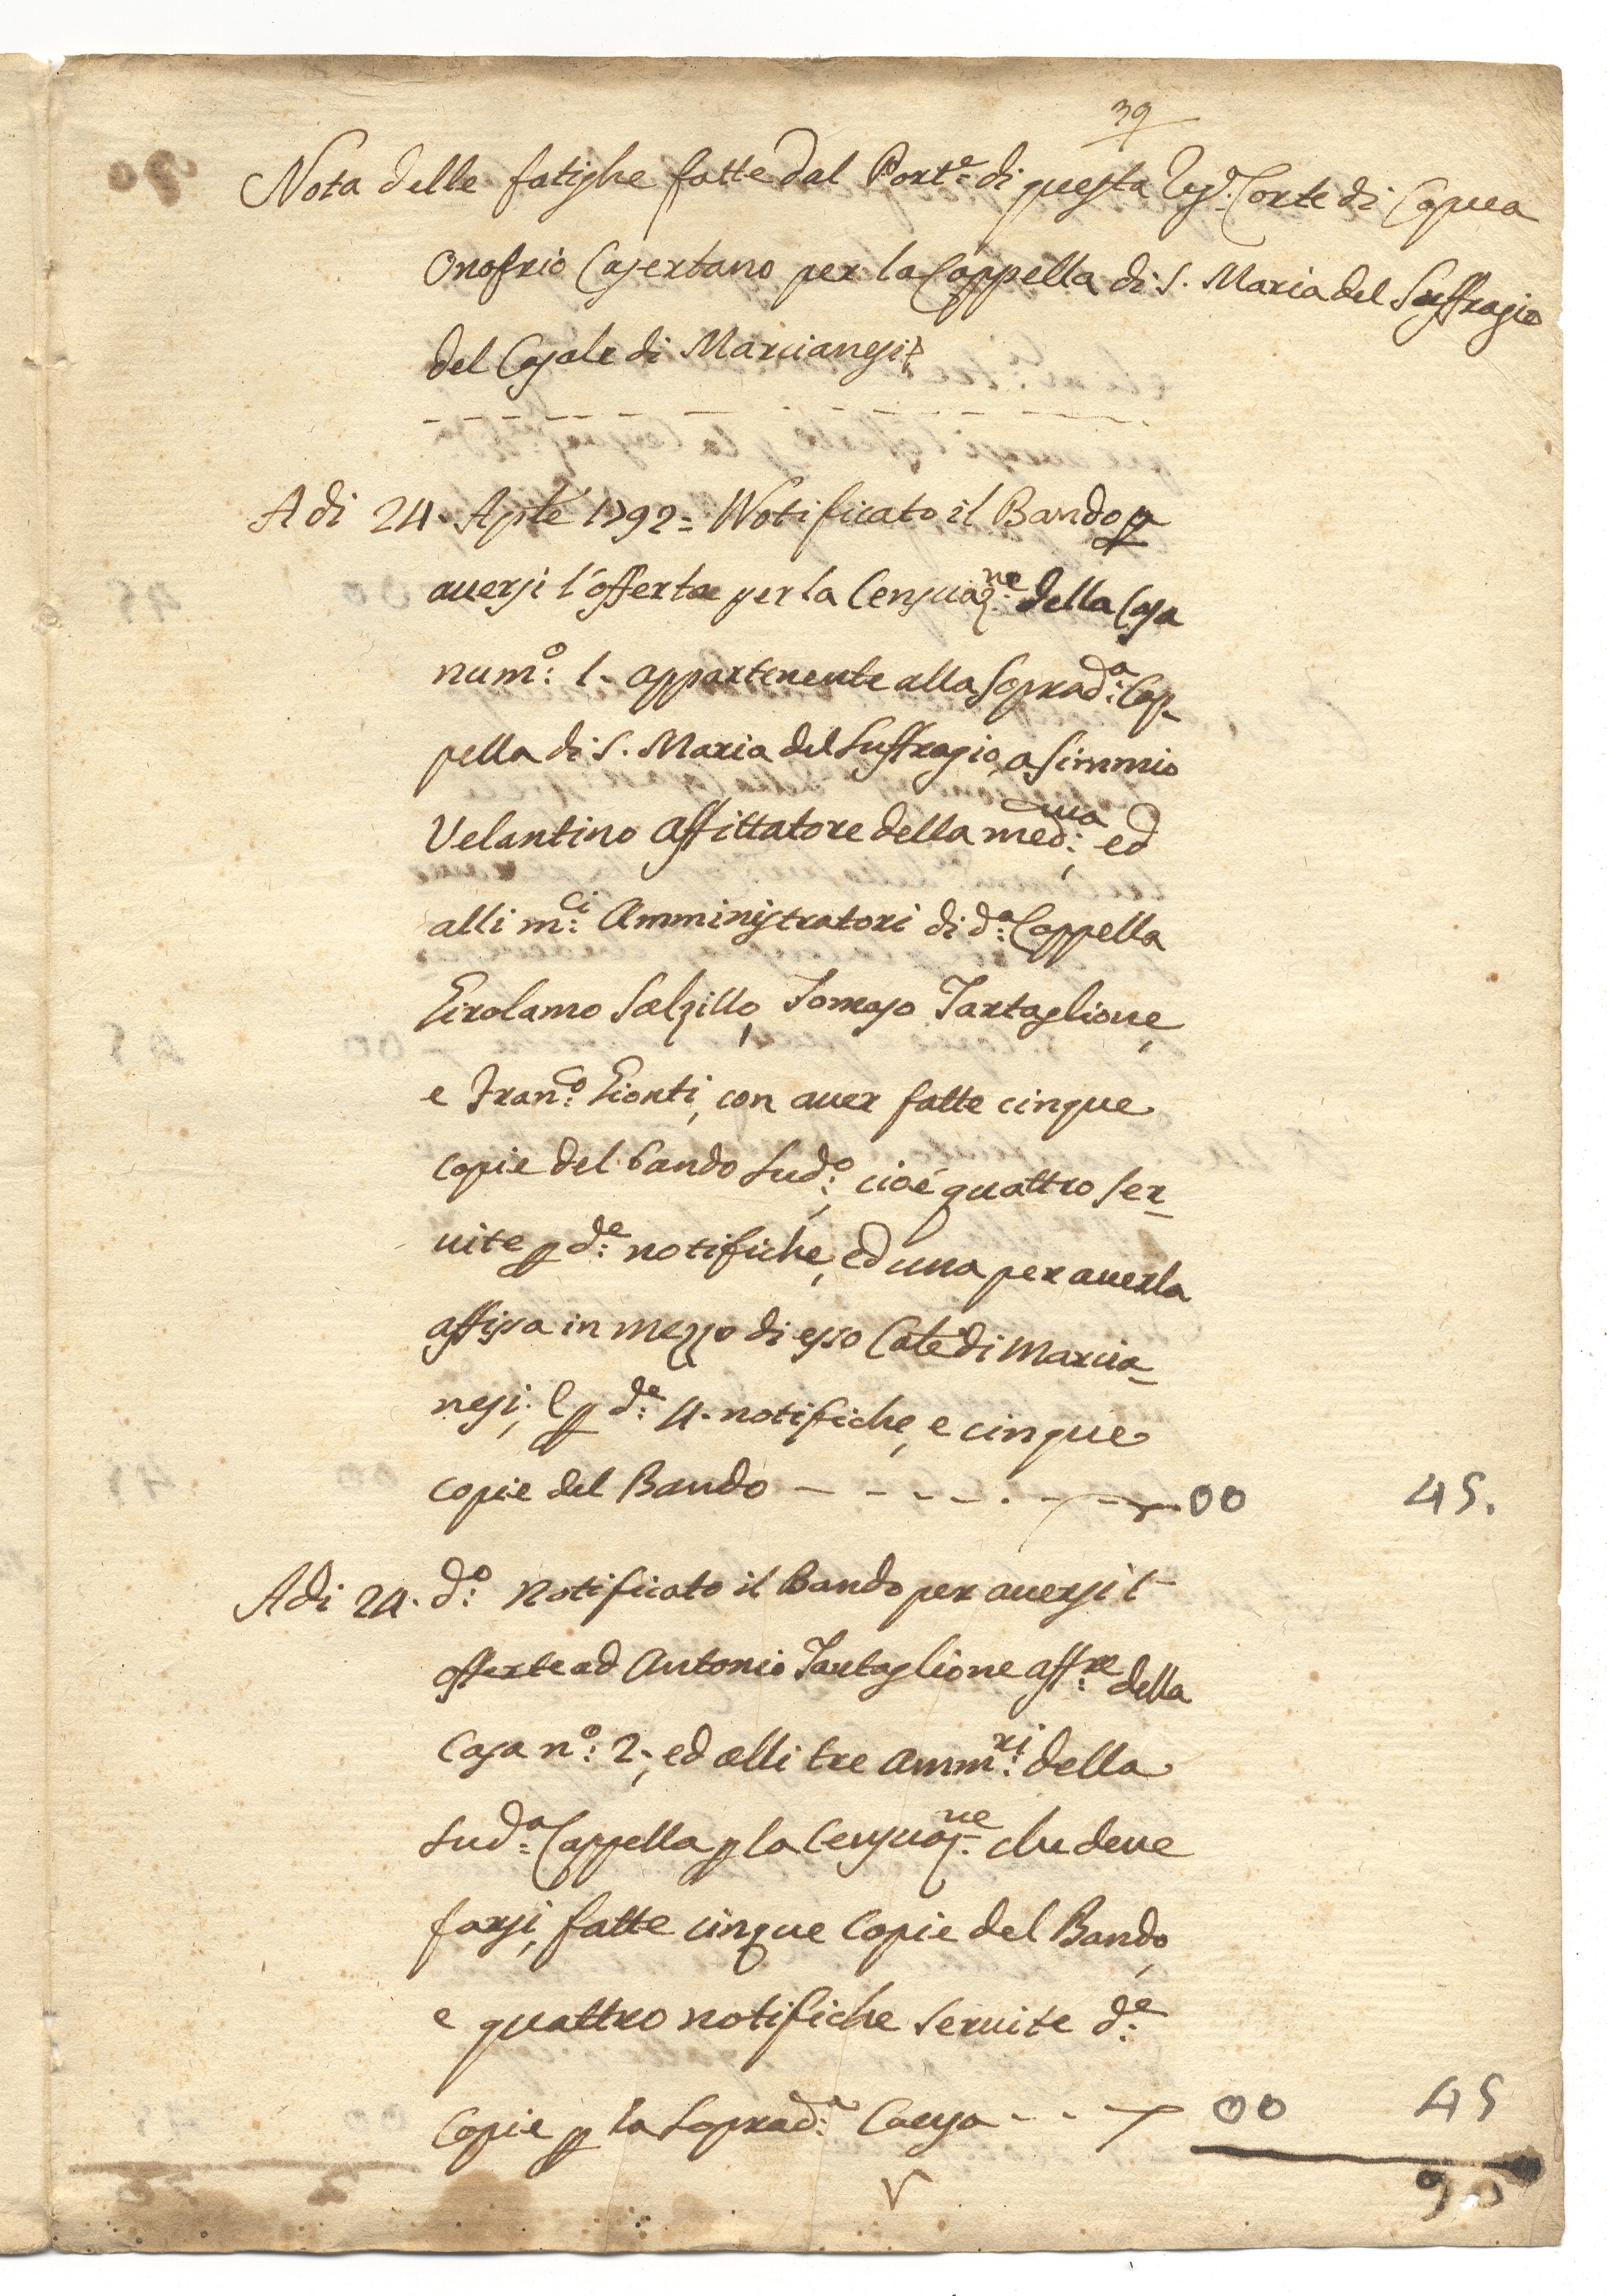 39
Nota delle fatighe fatte dal Port.e di questa Reg.a Corte di Capua
Onofrio Casertano per la Cappella di S. Maria del Suffragio
del Casale di Marcianesi
A di 24. Aple 1792= Notificato il Bando p
aversi l'offerta per la Censuaz.ne della Casa
num.o: 1. appartenente alla soprad.a: Cap-
pella di S. Maria del Suffragio, a Simmio
Velantino affittatore della med.ma:, ed
alli m.ci: Amministratori di d.a: Cappella
Girolamo Salzillo, Tomaso Tartaglione,
e Fran.co: Gionti, con aver fatte cinque
copie del bando sud.o:, cioè quattro ser-
vite p d.e: notifiche, ed una per averla
affissa in mezzo di esso Cale di Marcia-
nesi; e p d.e: 4. notifiche, e cinque
copie del Bando - - - - - - - 00 45.
A di 24. d.o: Notificato il Bando per aversi l'
offerte ad Antonio Tartaglione aff.re: della
Casa n.o: 2., ed alli tre Amm.ri: della
sud.a: Cappella p la Censuaz.ne: che deve
farsi, fatte cinque copie del Bando,
e quattro notifiche servite d.e:
copie p la soprad.a: Causa - - - 00 45
90